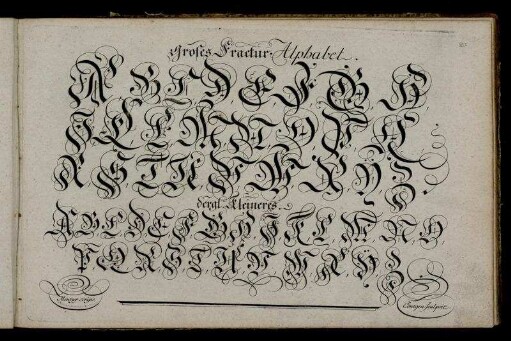 Großes Fractur-Alphabet.
A B C D E F G H
J K L M N O P Q
R S T U V W X Y Z
dergl. Kleineres.
A B C D E F G H J K L M N O
P Q R S T U V W X Y Z